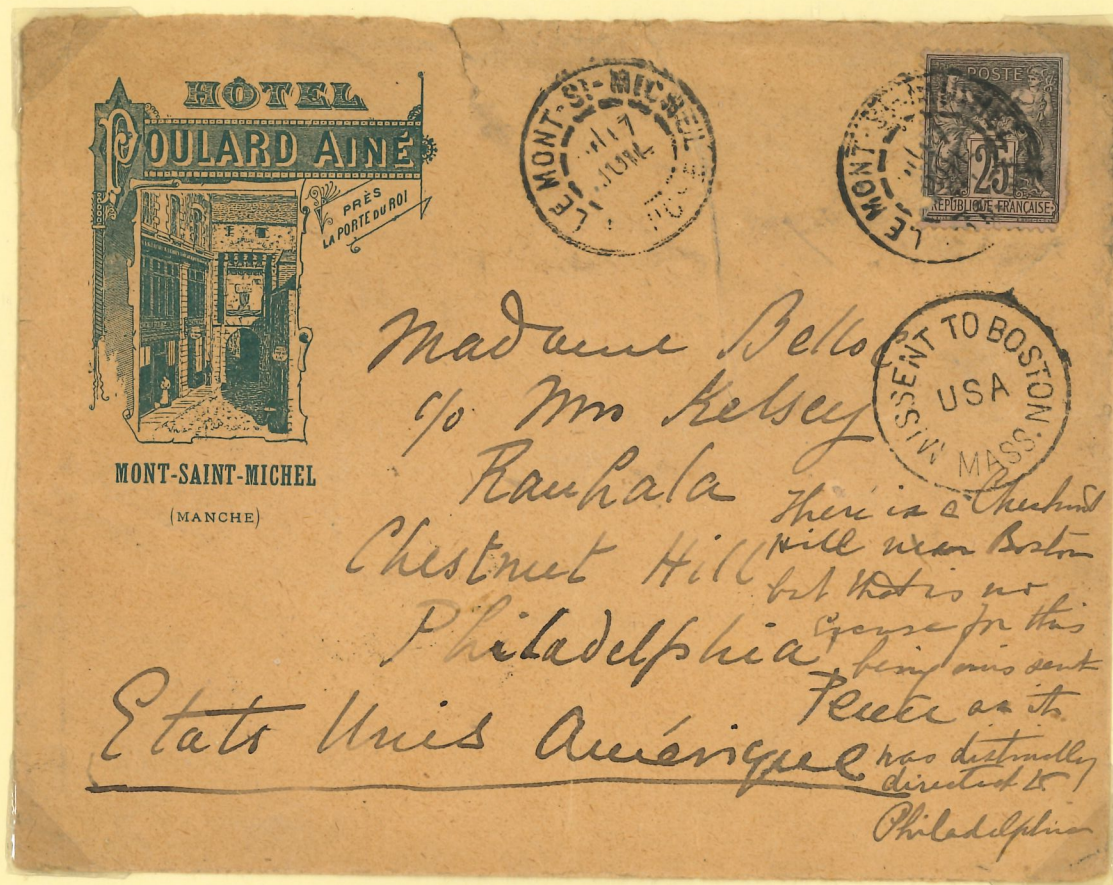 HÔTEL
POULARD AINÉ
PRÈS
LA PORTE DU ROI
MONT-SAINT-MICHEL
(MANCHE)
LE MONT-ST-MICHEL
17
JUIL
LE MONT-ST-MICHEL
POSTES
25
RÉPUBLIQUE FRANÇAISE
MISSENT TO BOSTON
USA
MASS.
Madame Belloc
c/o Mrs Kelsey
Rauhala
Chestnut Hill
Philadelphia
Penn
Etats Unis Amérique
There is a Chestnut
Hill near Boston
but that is no
Excuse for this
being mis sent
as its
was distinctly
directed to
Philadelphia